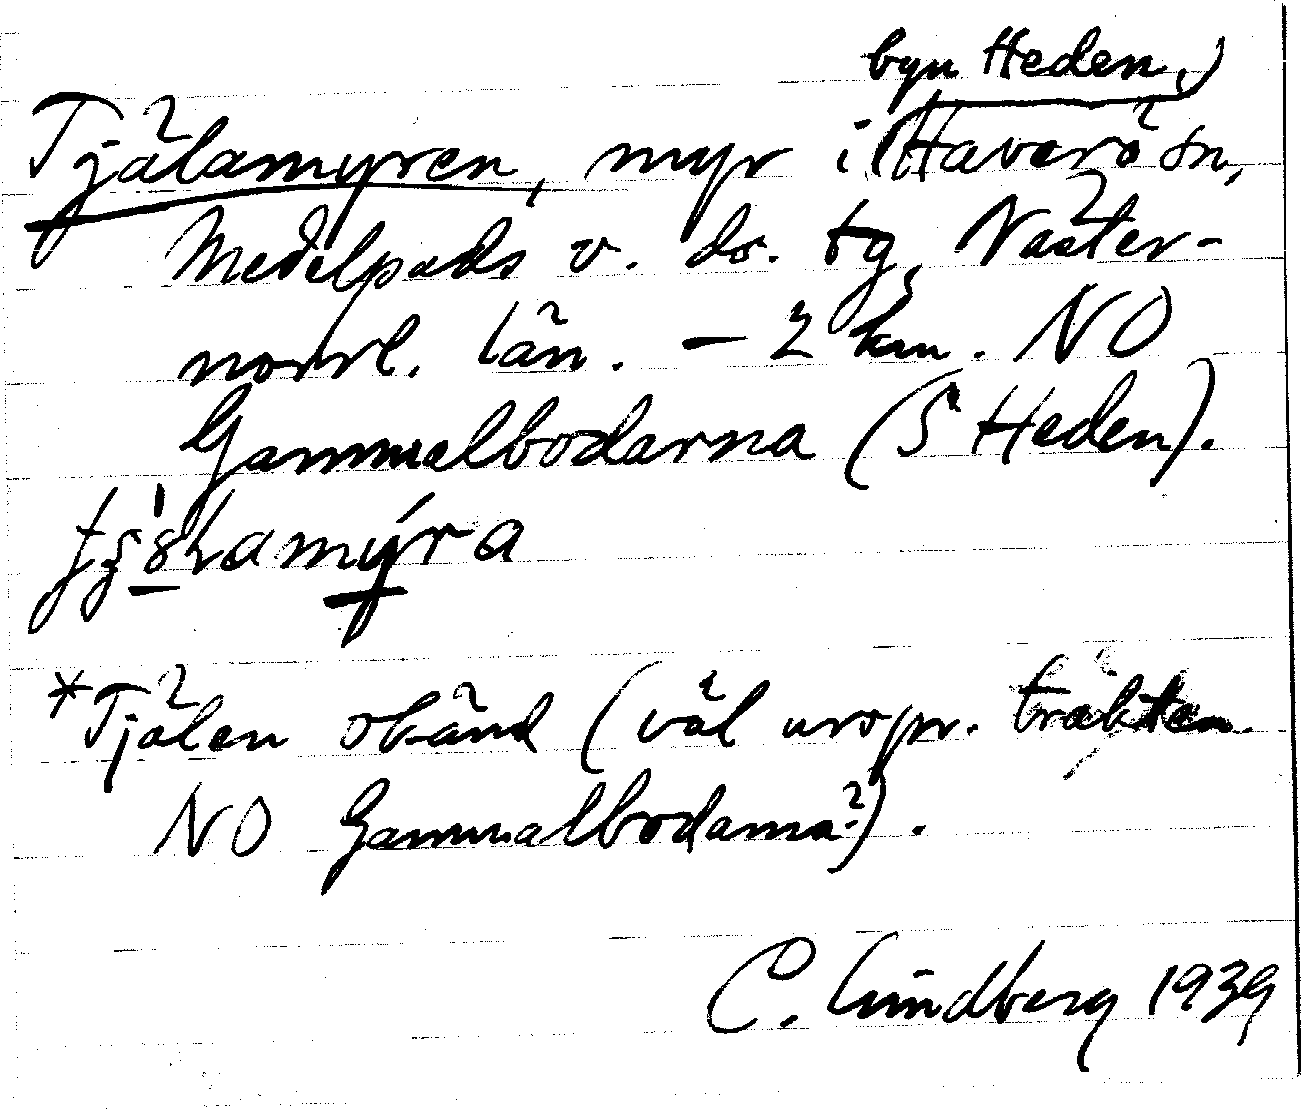 byn Heden,)
Tjälamyren, myr i (Haverö sn,
Medelpads v. ds. tg, Väster-
norrl. län. – 2 km. NO
Gammelbodarna (S Heden).

*Tjälen okänd (väl urspr. trakten
NO Gammalbodarna?).
C. Lindberg 1939